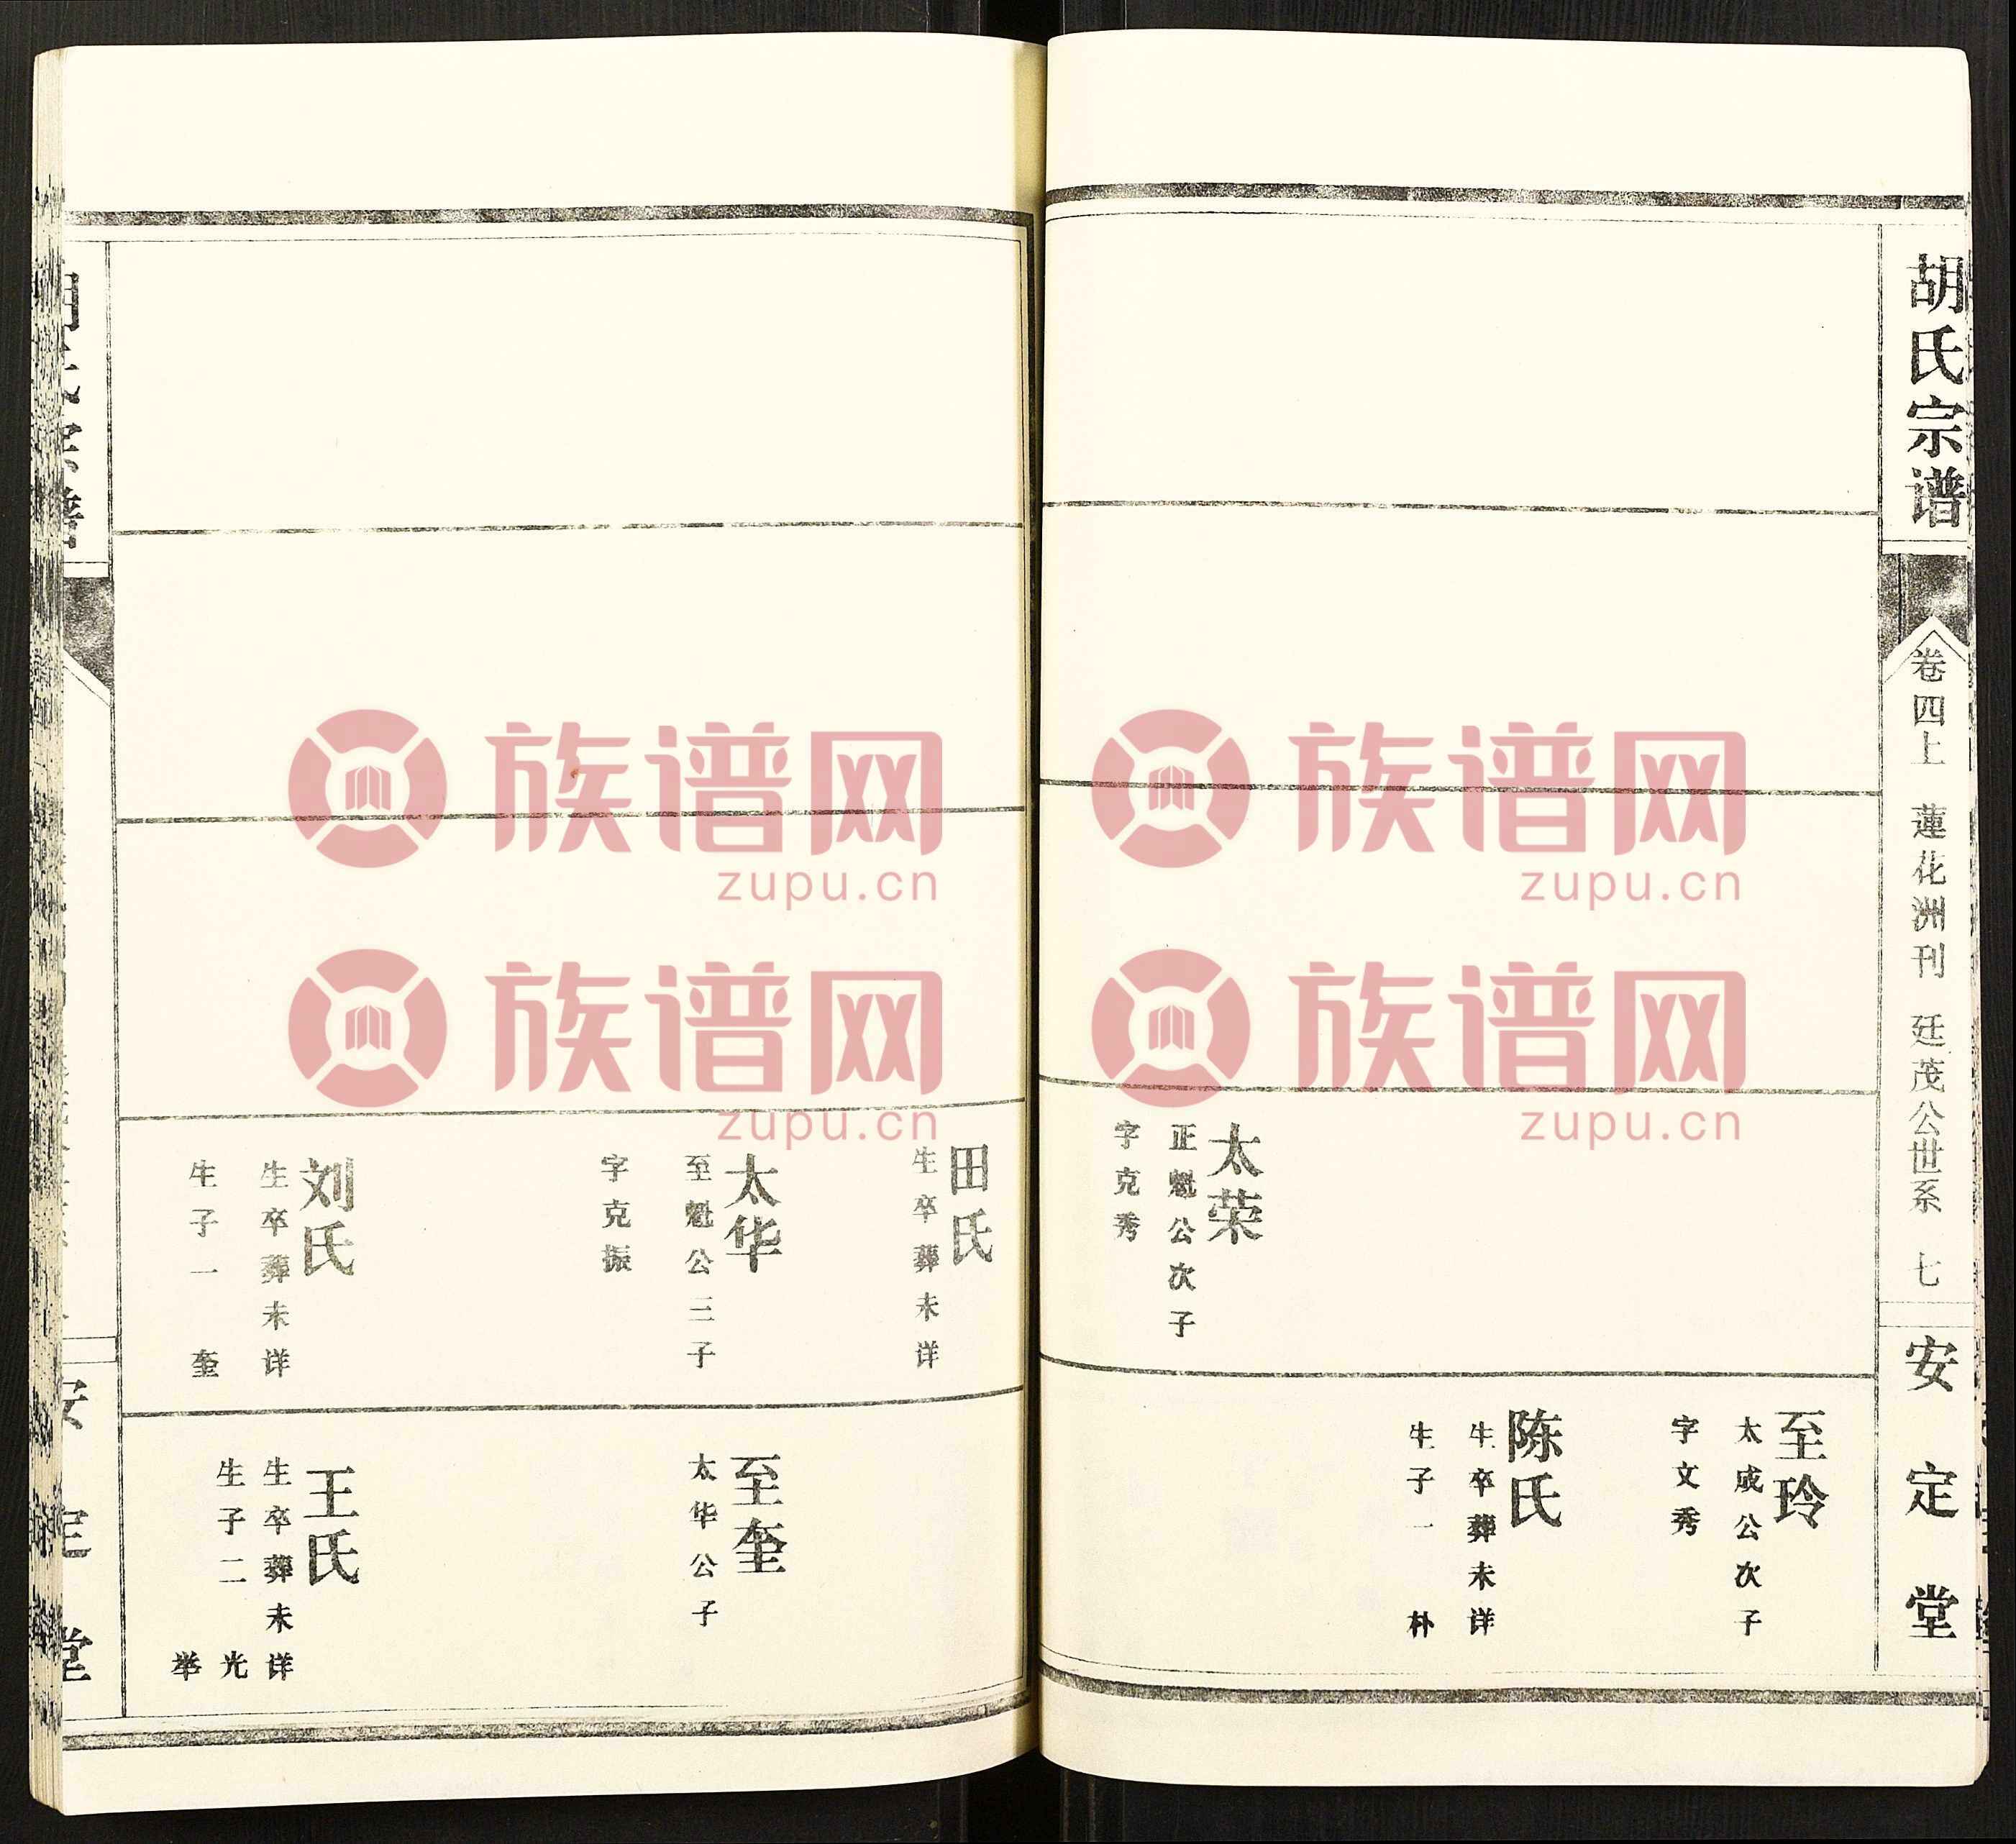 胡氏宗谱
卷四上 蓮花洲刊 廷茂公世系 七
安定堂
太荣
正魁公次子
字克秀
至玲
太成公次子
字文秀
陈氏
生卒葬未详
生子一 朴
田氏
生卒葬未详
太华
至魁公三子
字克振
刘氏
生卒葬未详
生子一 奎
至奎
太华公子
王氏
生卒葬未详
生子二 光
举
安定堂
族谱网
zupu.cn
族谱网
zupu.cn
族谱网
zupu.cn
族谱网
zupu.cn